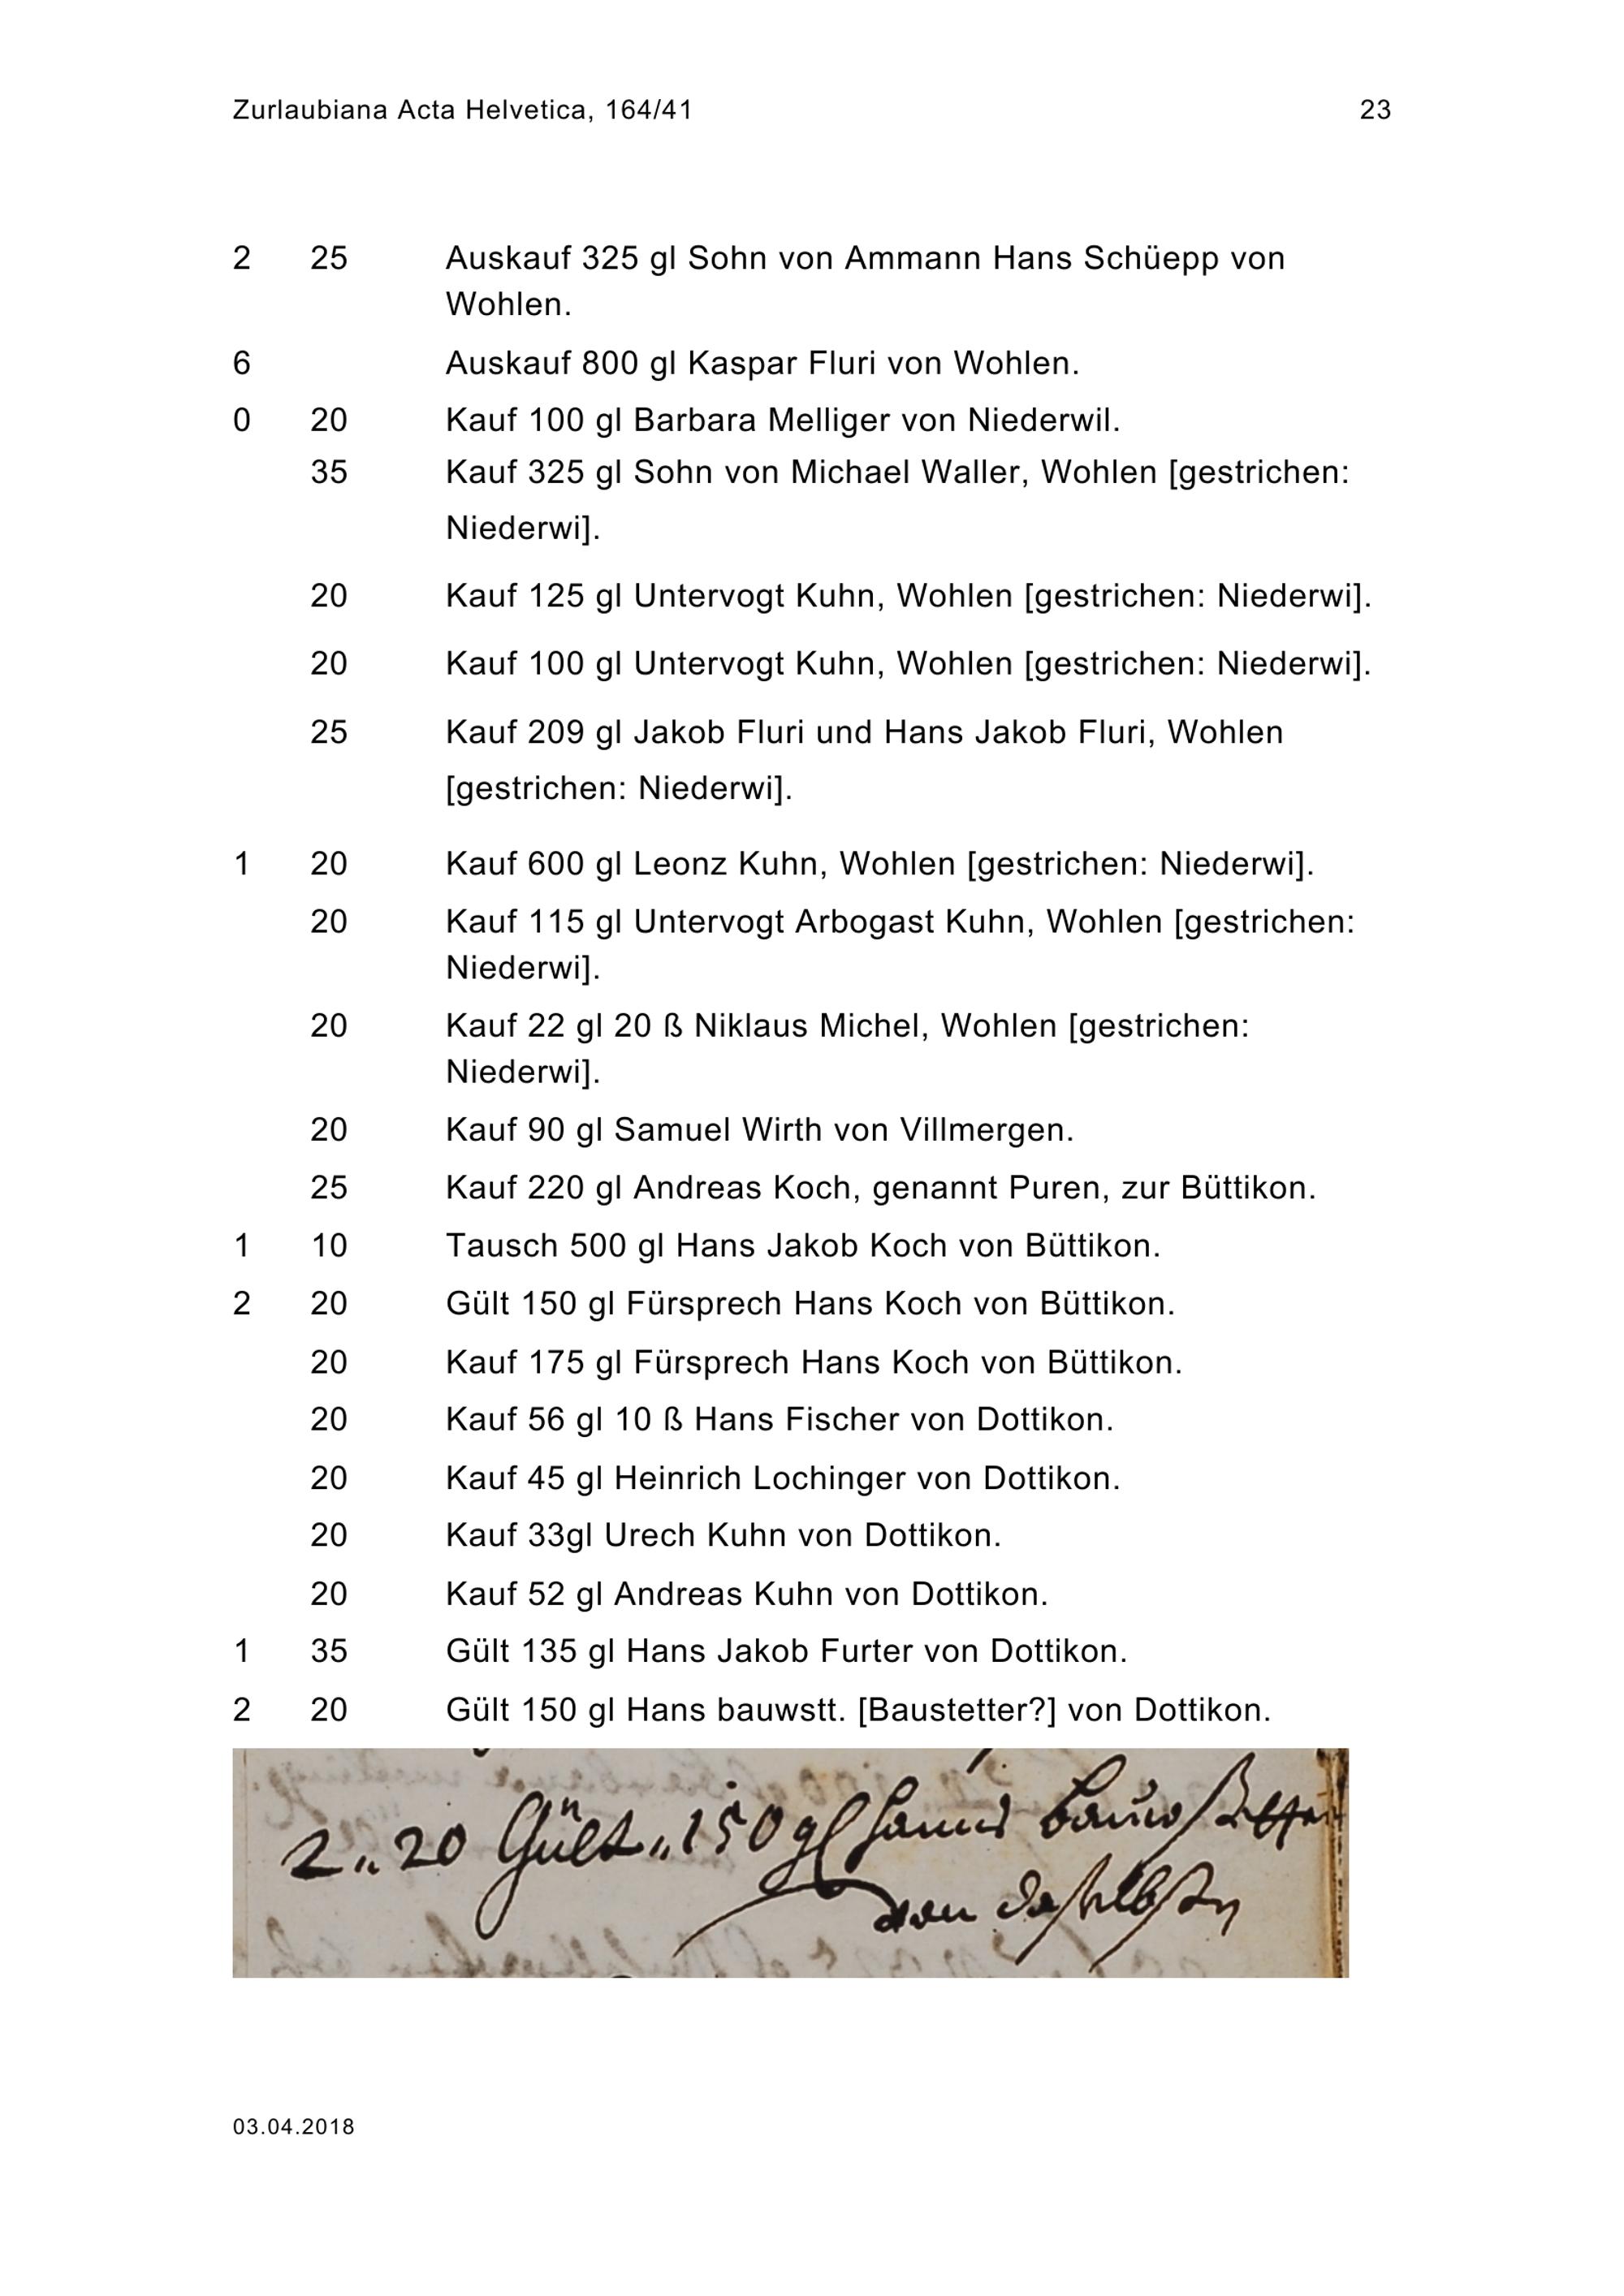 Zurlaubiana Acta Helvetica, 164/41 23
2 25 Auskauf 325 gl Sohn von Ammann Hans Schüepp von
Wohlen.
6 Auskauf 800 gl Kaspar Fluri von Wohlen.
0 20 Kauf 100 gl Barbara Melliger von Niederwil.
35 Kauf 325 gl Sohn von Michael Waller, Wohlen [gestrichen:
Niederwi].
20 Kauf 125 gl Untervogt Kuhn, Wohlen [gestrichen: Niederwi].
20 Kauf 100 gl Untervogt Kuhn, Wohlen [gestrichen: Niederwi].
25 Kauf 209 gl Jakob Fluri und Hans Jakob Fluri, Wohlen
[gestrichen: Niederwi].
1 20 Kauf 600 gl Leonz Kuhn, Wohlen [gestrichen: Niederwi].
20 Kauf 115 gl Untervogt Arbogast Kuhn, Wohlen [gestrichen:
Niederwi].
20 Kauf 22 gl 20 ß Niklaus Michel, Wohlen [gestrichen:
Niederwi].
20 Kauf 90 gl Samuel Wirth von Villmergen.
25 Kauf 220 gl Andreas Koch, genannt Puren, zur Büttikon.
1 10 Tausch 500 gl Hans Jakob Koch von Büttikon.
2 20 Gült 150 gl Fürsprech Hans Koch von Büttikon.
20 Kauf 175 gl Fürsprech Hans Koch von Büttikon.
20 Kauf 56 gl 10 ß Hans Fischer von Dottikon.
20 Kauf 45 gl Heinrich Lochinger von Dottikon.
20 Kauf 33gl Urech Kuhn von Dottikon.
20 Kauf 52 gl Andreas Kuhn von Dottikon.
1 35 Gült 135 gl Hans Jakob Furter von Dottikon.
2 20 Gült 150 gl Hans bauwstt. [Baustetter?] von Dottikon.
2 „ 20 Gült „ 150 gl hanns
von daselbsten
03.04.2018